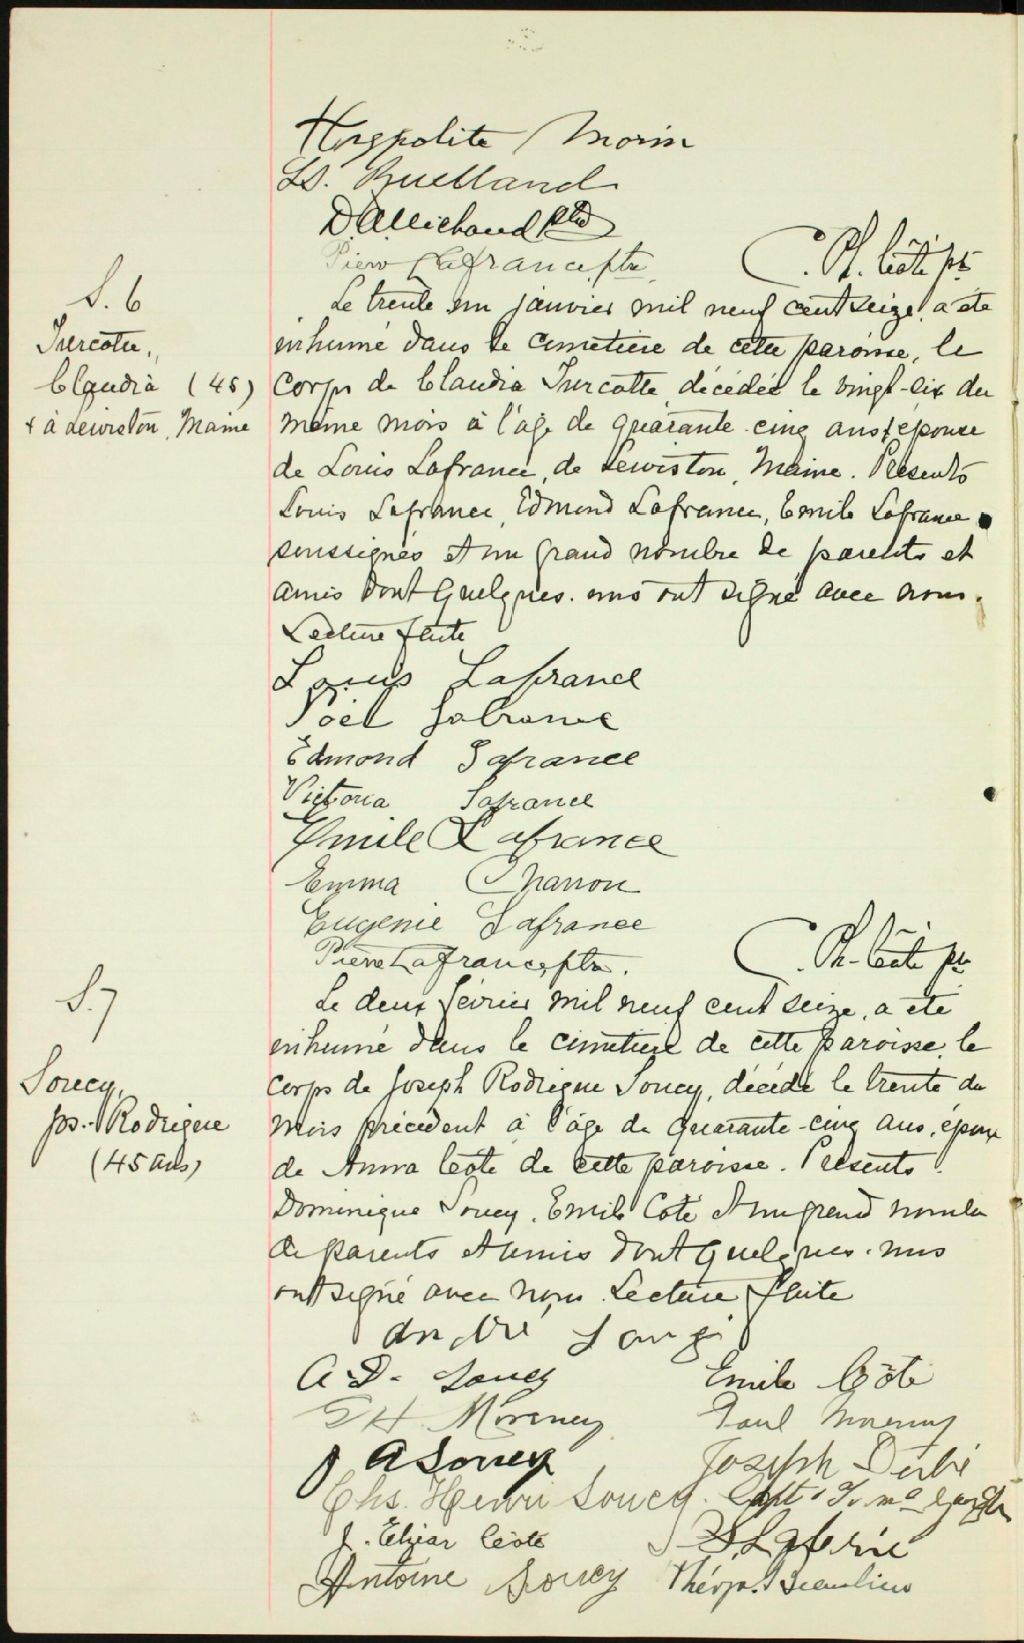 Hyppolite Morin
Ls. Buelland
D. Michaud Ptre
Pierre Lafrance, ptre
C. Ph. Côté ptr
S. 6
Turcotte,
Claudia (45)
+ à Lewiston, Maine
Le trente un janvier mil neuf cent seize, a été
inhumé dans le cimetière de cette paroisse, le
corps de Claudia Turcotte, décédée le vingt-six du
même mois à l'âge de quarante-cinq ans, épouse
de Louis Lafrance, de Lewiston, Maine. Présents
Louis Lafrance, Edmond Lafrance, Emile Lafrance
soussignés et un grand nombre de parents et
amis dont quelques-uns ont signé avec nous.
Lecture faite
Louis Lafrance
Noël Lafrance
Edmond Lafrance
Victoria Lafrance
Emile Lafrance
Emma Charron
Eugenie Lafrance
Pierre Lafrance, ptre.
C. Ph. Côté ptr
S. 7
Soucy,
Jos.-Rodrigue
(45 ans)
Le deux février mil neuf cent seize, a été
inhumé dans le cimetière de cette paroisse, le
corps de Joseph Rodrigue Soucy, décédé le trente du
mois précédent à l'âge de quarante-cinq ans, époux
de Anna Côté de cette paroisse. Présents
Dominique Soucy, Emile Côté et un grand nombre
de parents et amis dont quelques-uns
ont signé avec nous. Lecture faite
André
A. D. Soucy Emile Côté
Paul
J A Soucy Joseph Dubé
Chs. Henri Soucy. Capt.
J. Elzéar Côté
Antoine Soucy Théop. Beaulieu